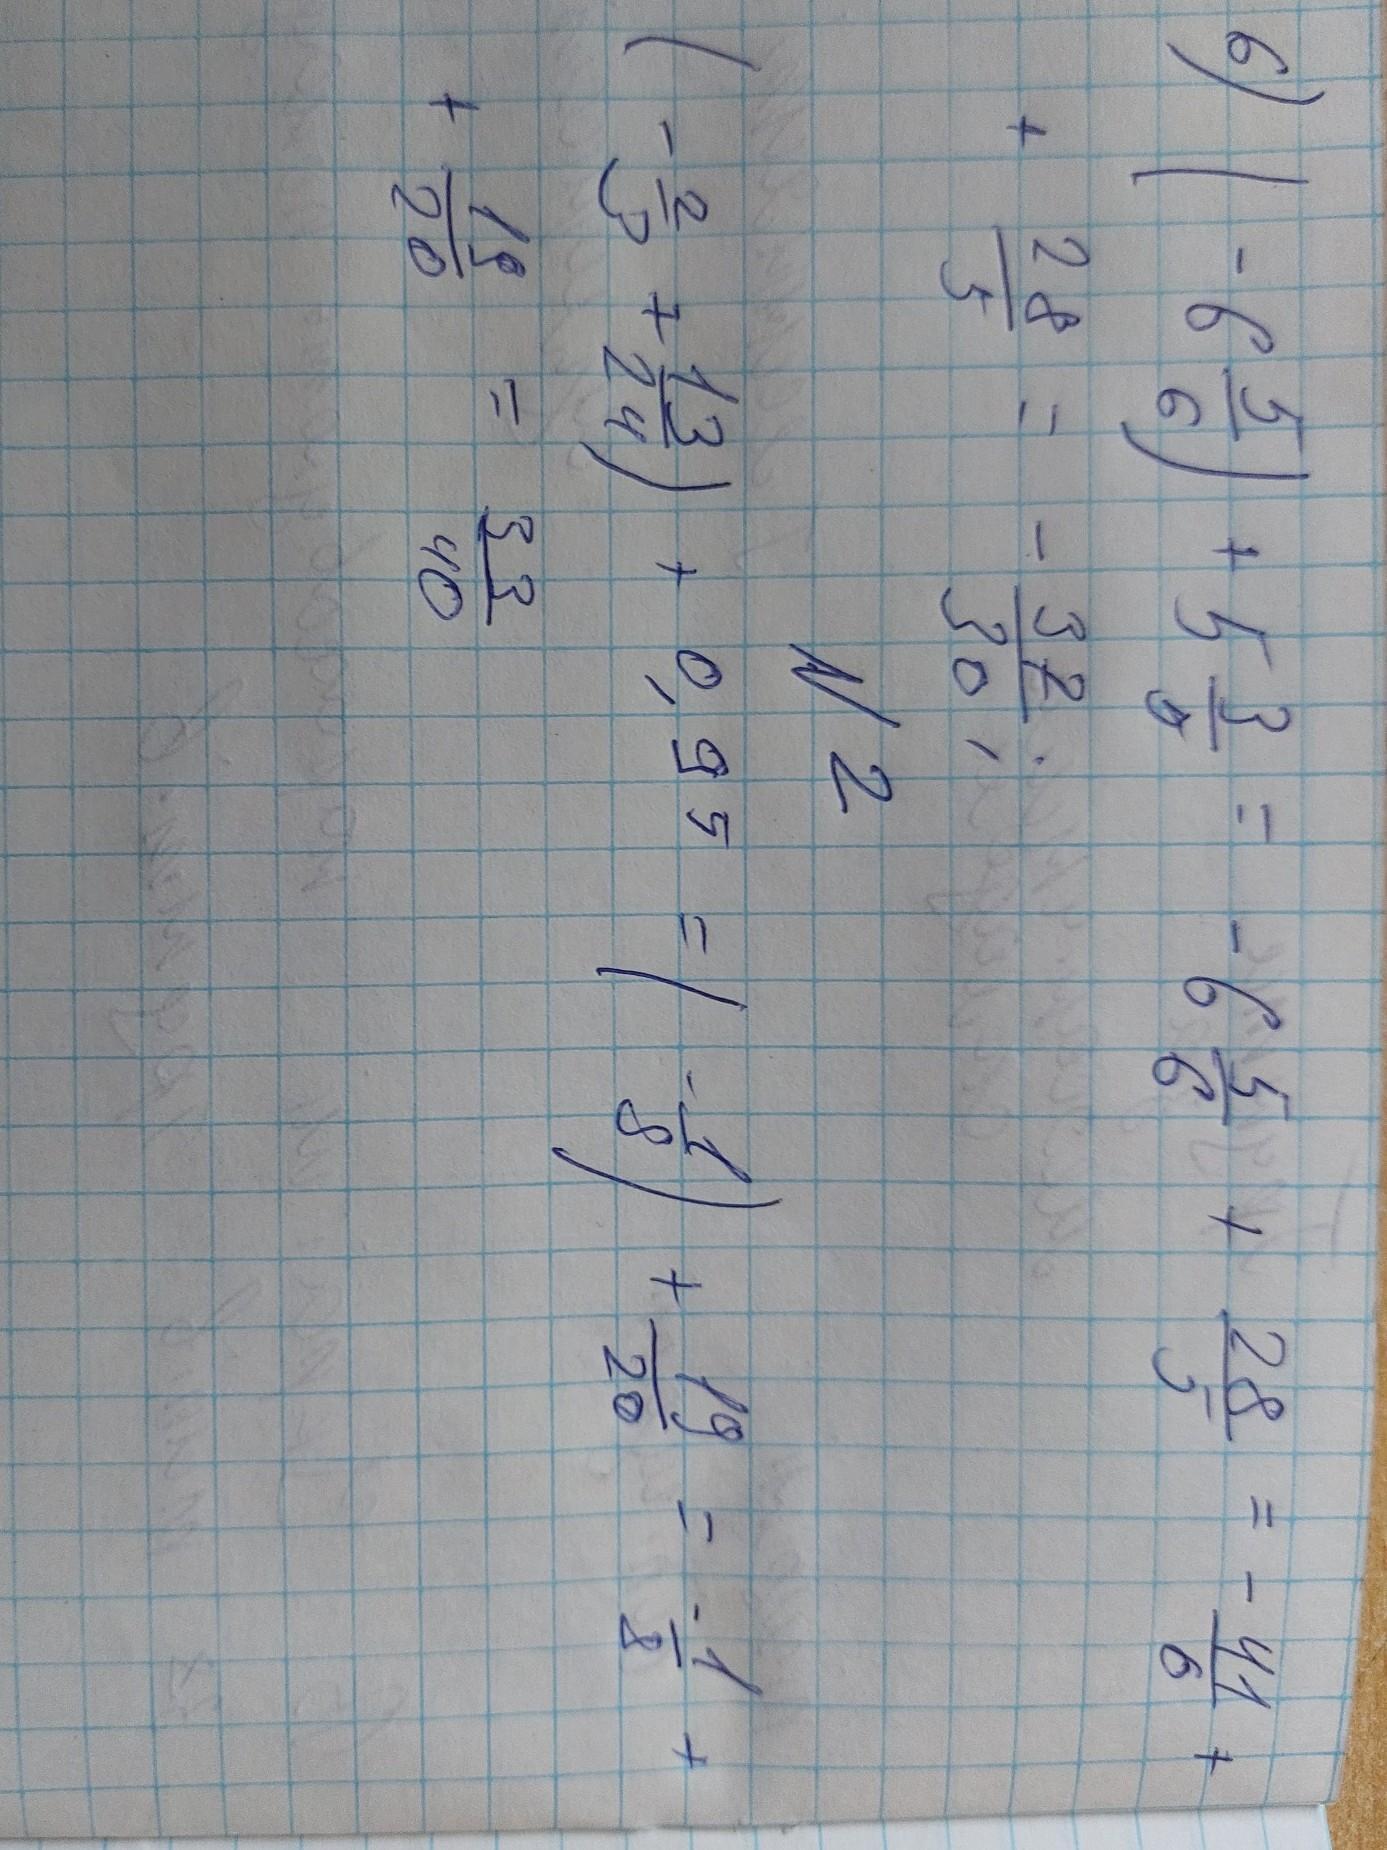 б) (-6 5/6) + 5 3/5 = -6 5/6 + 28/5 = -41/6 +
+ 28/5 = -32/30,
N2
(-2/3 + 13/24) + 0,95 = (-1/8) + 19/20 = -1/8 +
+ 19/20 = 33/40